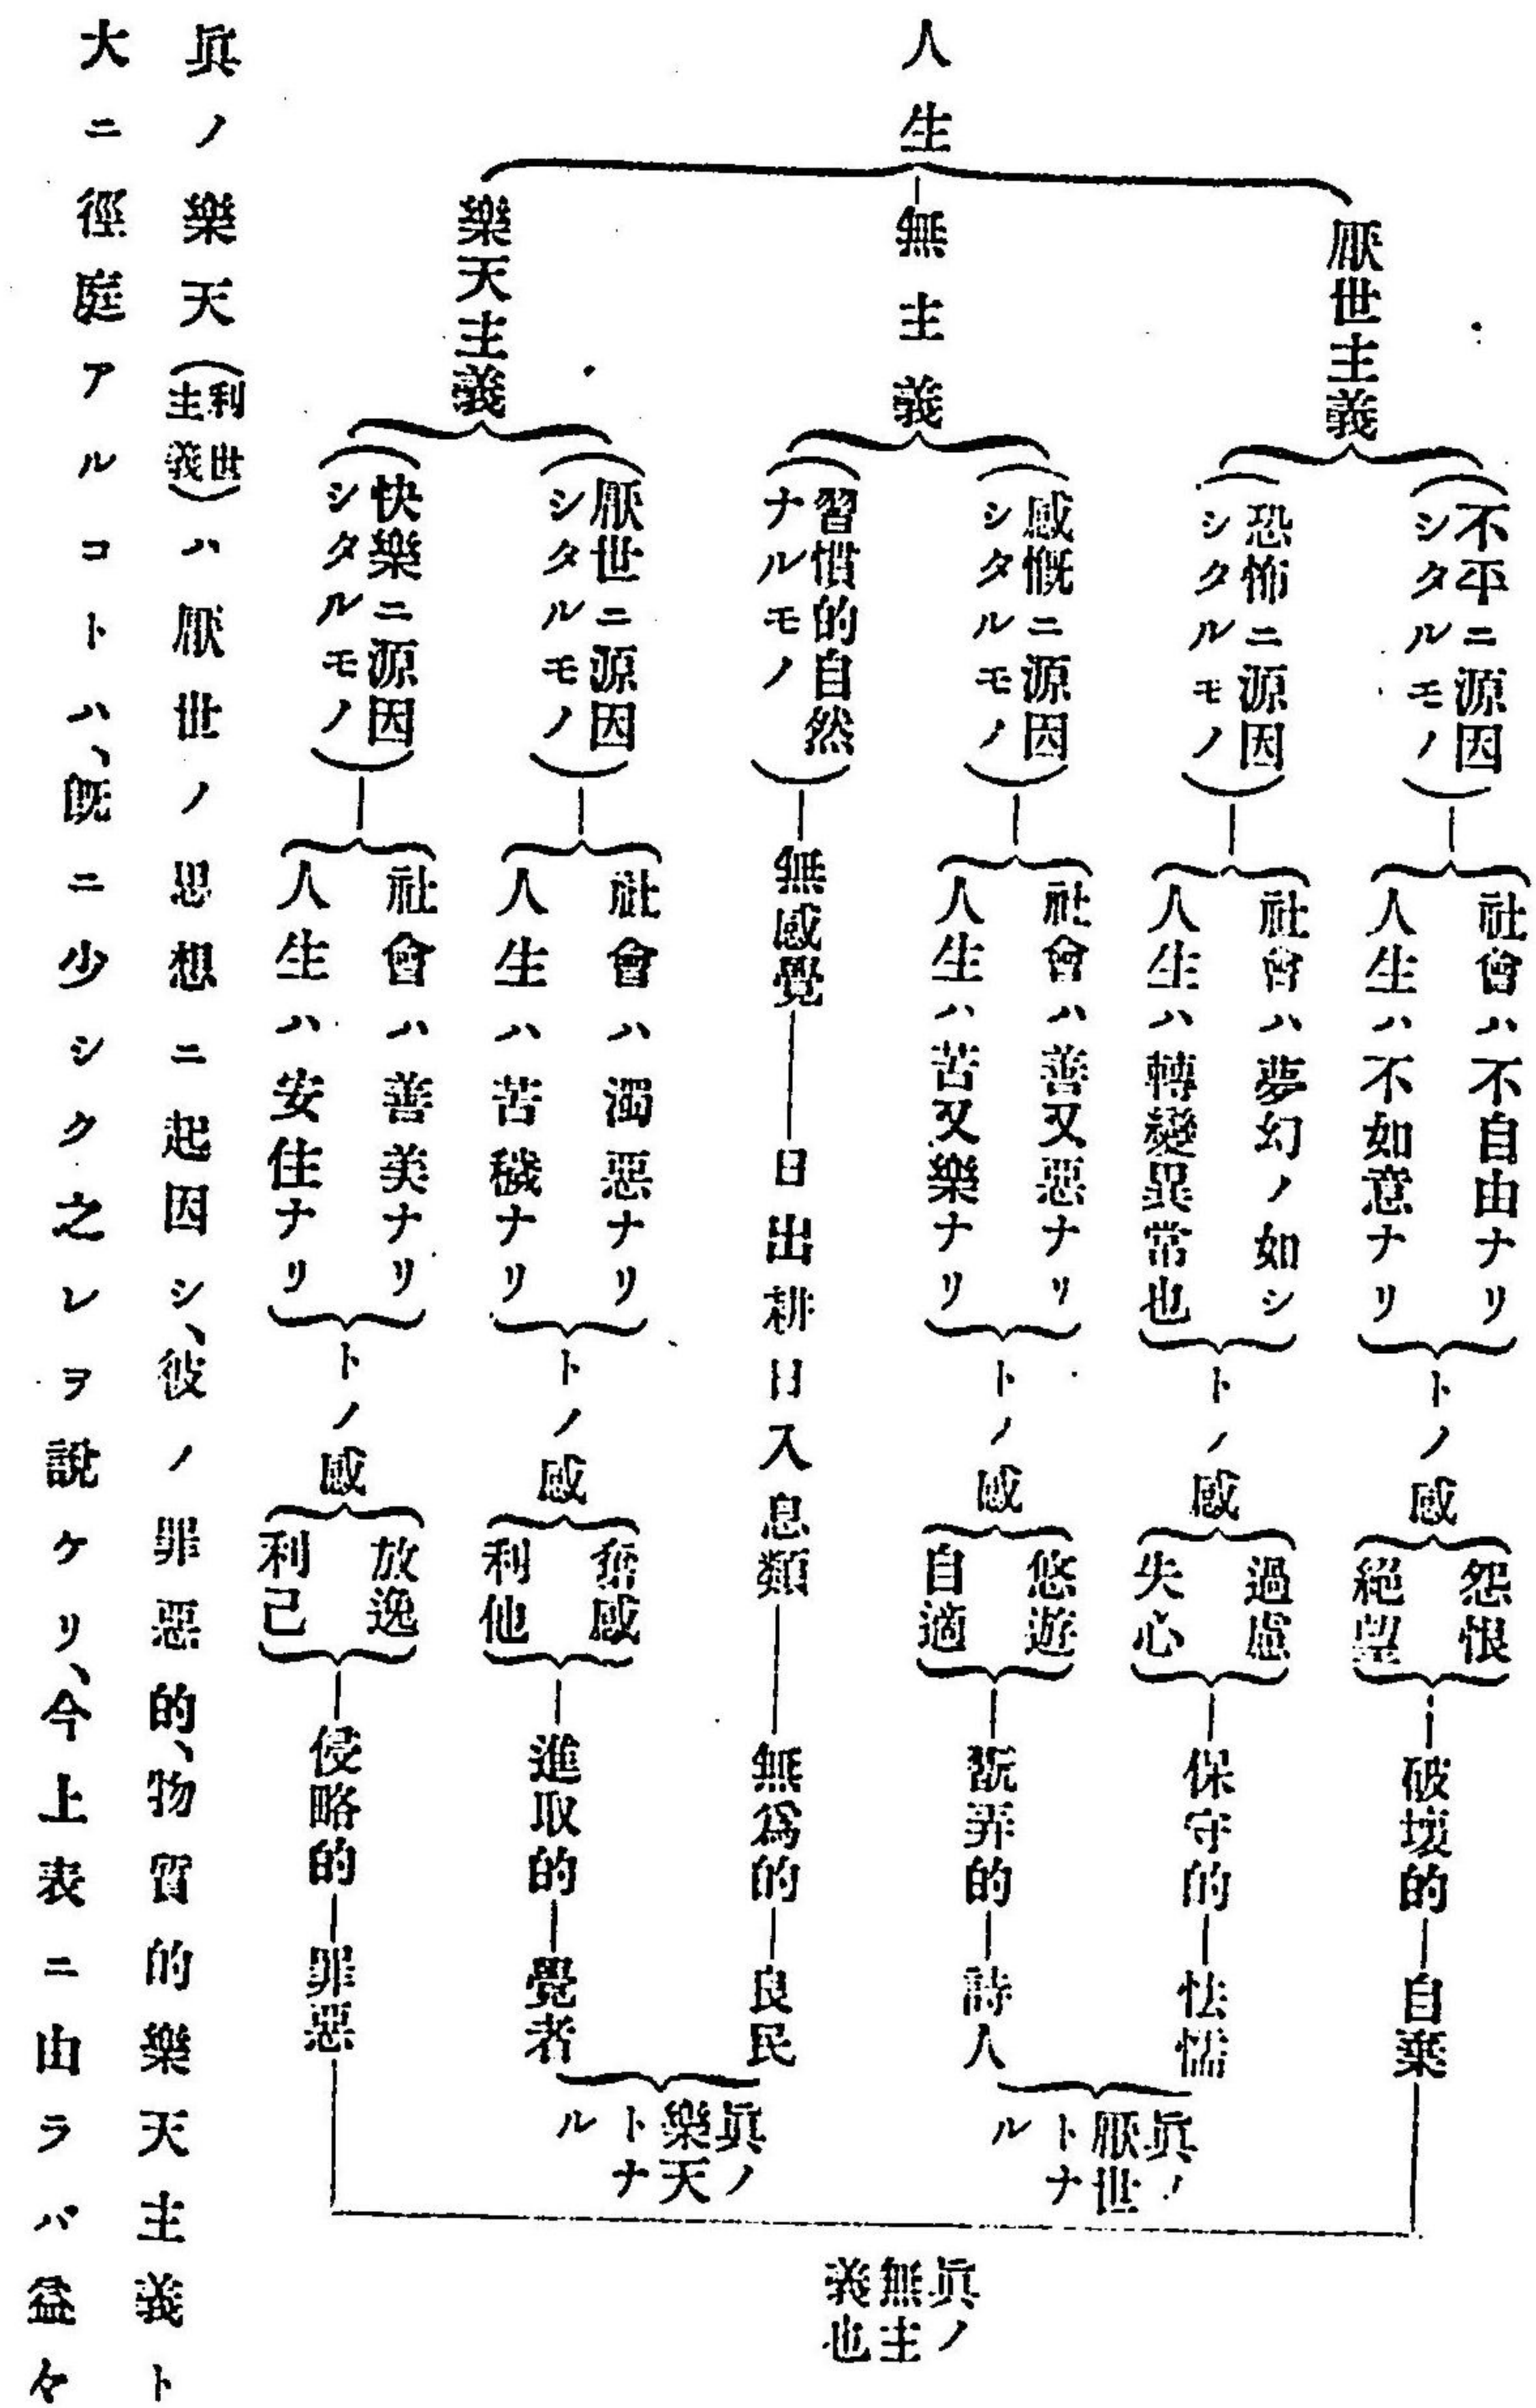 人生
厭世主義
（不平ニ源因
シタルモノ）
社會ハ不自由ナリ
人生ハ不如意ナリ
トノ感
怨恨
絕望
破壞的
自棄
（恐怖ニ源因
シタルモノ）
社會ハ夢幻ノ如シ
人生ハ轉變異常也
トノ感
過慮
失心
保守的
怯懦
無主義
（感慨ニ源因
シタルモノ）
社會ハ善又惡ナリ
人生ハ苦又樂ナリ
トノ感
悠遊
自適
翫弄的
詩人
眞ノ
厭世
トナ
ル
（習慣的自然
ナルモノ）
無感覺
日出耕日入息類
無爲的
良民
樂天主義
（厭世ニ源因
シタルモノ）
社會ハ濁惡ナリ
人生ハ苦穢ナリ
トノ感
奮感
利他
進取的
覺者
眞ノ
樂天
トナ
ル
（快樂ニ源因
シタルモノ）
社會ハ善美ナリ
人生ハ安住ナリ
トノ感
放逸
利己
侵略的
罪惡
眞ノ
無主
義也
眞ノ樂天（利世主義）ハ厭世ノ思想ニ起因シ、彼ノ罪惡的、物質的樂天主義ト
大ニ徑庭アルコトハ、既ニ少シク之レヲ說ケリ、今上表ニ由ラバ益々